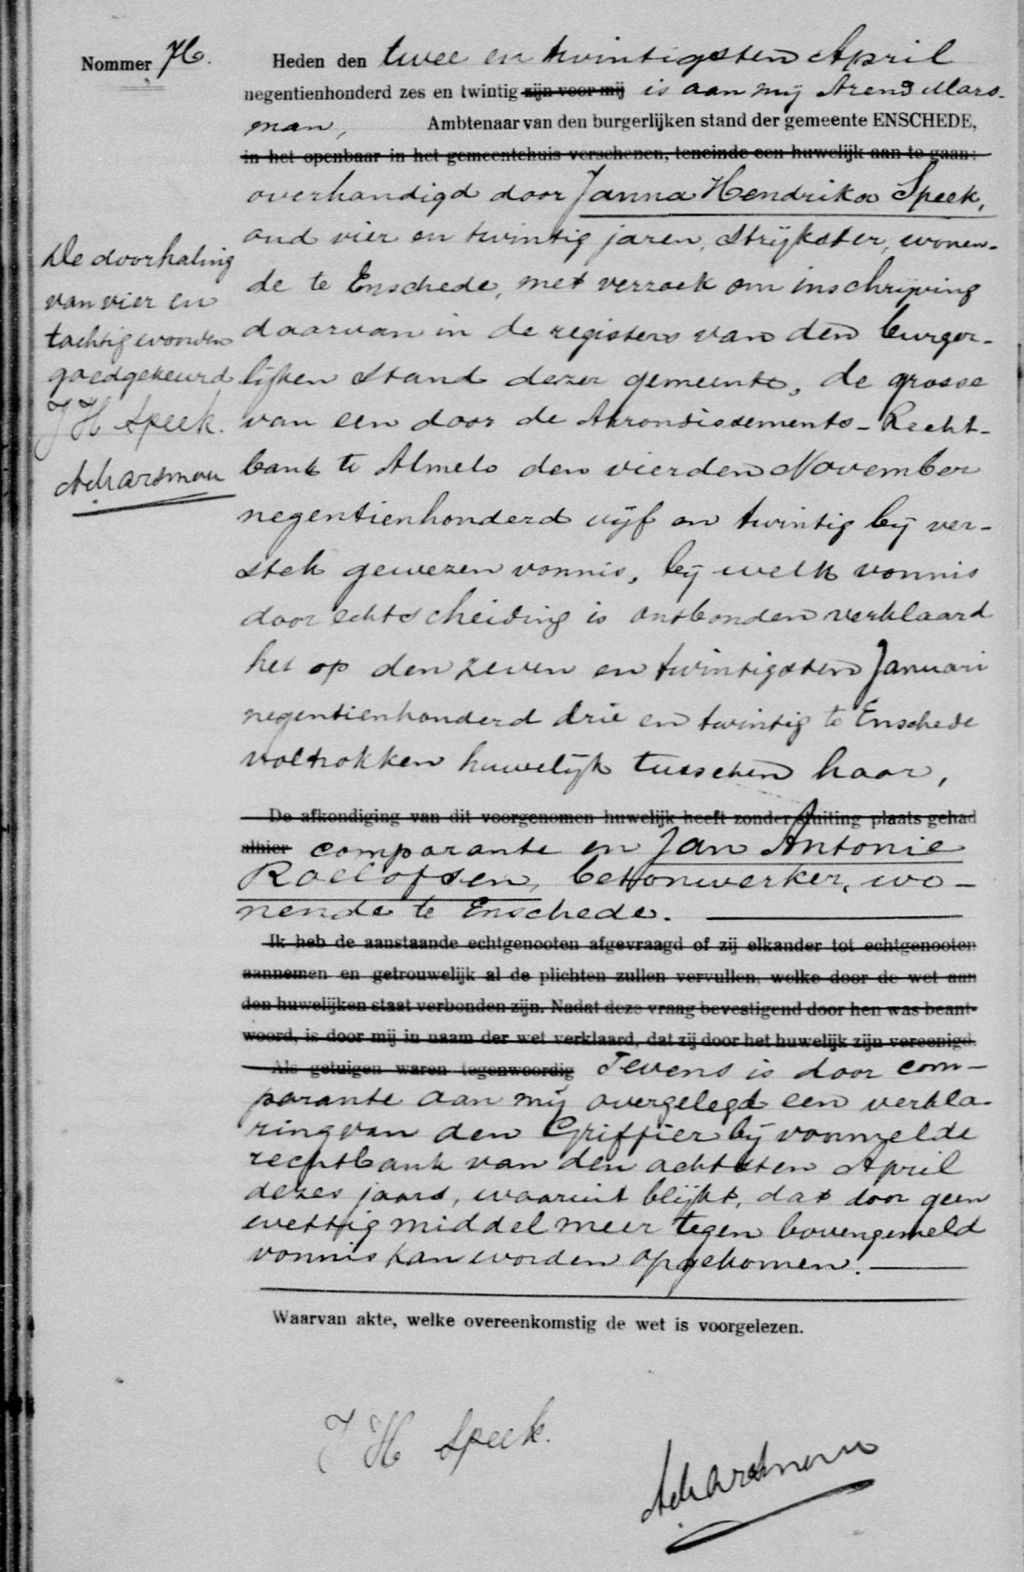 Nommer 76. Heden den twee en twintigsten April
negentienhonderd zes en twintig zijn voor mij is aan mij Arend Mars-
man, Ambtenaar van den burgerlijken stand der gemeente ENSCHEDE,
in het openbaar in het gemeentehuis verschenen, teneinde een huwelijk aan te gaan:
overhandigd door Janna Hendrika Speek,
oud vier en twintig jaren, strijkster, wonen-
de te Enschede, met verzoek om inschrijving
daarvan in de registers van den burger-
lijken stand dezer gemeente, de grosse
van een door de Arrondissements-Recht-
bank te Almelo den vierden November
negentienhonderd vijf en twintig bij ver-
stek gewezen vonnis, bij welk vonnis
door echtscheiding is ontbonden verklaard
het op den zeven en twintigsten Januari
negentienhonderd drie en twintig te Enschede
voltrokken huwelijk tusschen haar,
De afkondiging van dit voorgenomen huwelijk heeft zonder stuiting plaats gehad
alhier comparante en Jan Antonie
Roelofsen, betonwerker, wo-
nende te Enschede.
Ik heb de aanstaande echtgenooten afgevraagd of zij elkander tot echtgenooten
aannemen en getrouwelijk al de plichten zullen vervullen, welke door de wet aan
den huwelijken staat verbonden zijn. Nadat deze vraag bevestigend door hen was beant-
woord, is door mij in naam der wet verklaard, dat zij door het huwelijk zijn vereenigd.
Als getuigen waren tegenwoordig Tevens is door com-
parante aan mij overgelegd een verkla-
ring van den Griffier bij voormelde
rechtbank van den achtsten April
dezes jaars, waaruit blijkt, dat door geen
wettig middel meer tegen bovengemeld
vonnis kan worden opgekomen.
Waarvan akte, welke overeenkomstig de wet is voorgelezen.
J H Speek.
A Marsman
De doorhaling
van vier en
tachtig woorden
goedgekeurd
J H Speek.
A Marsman